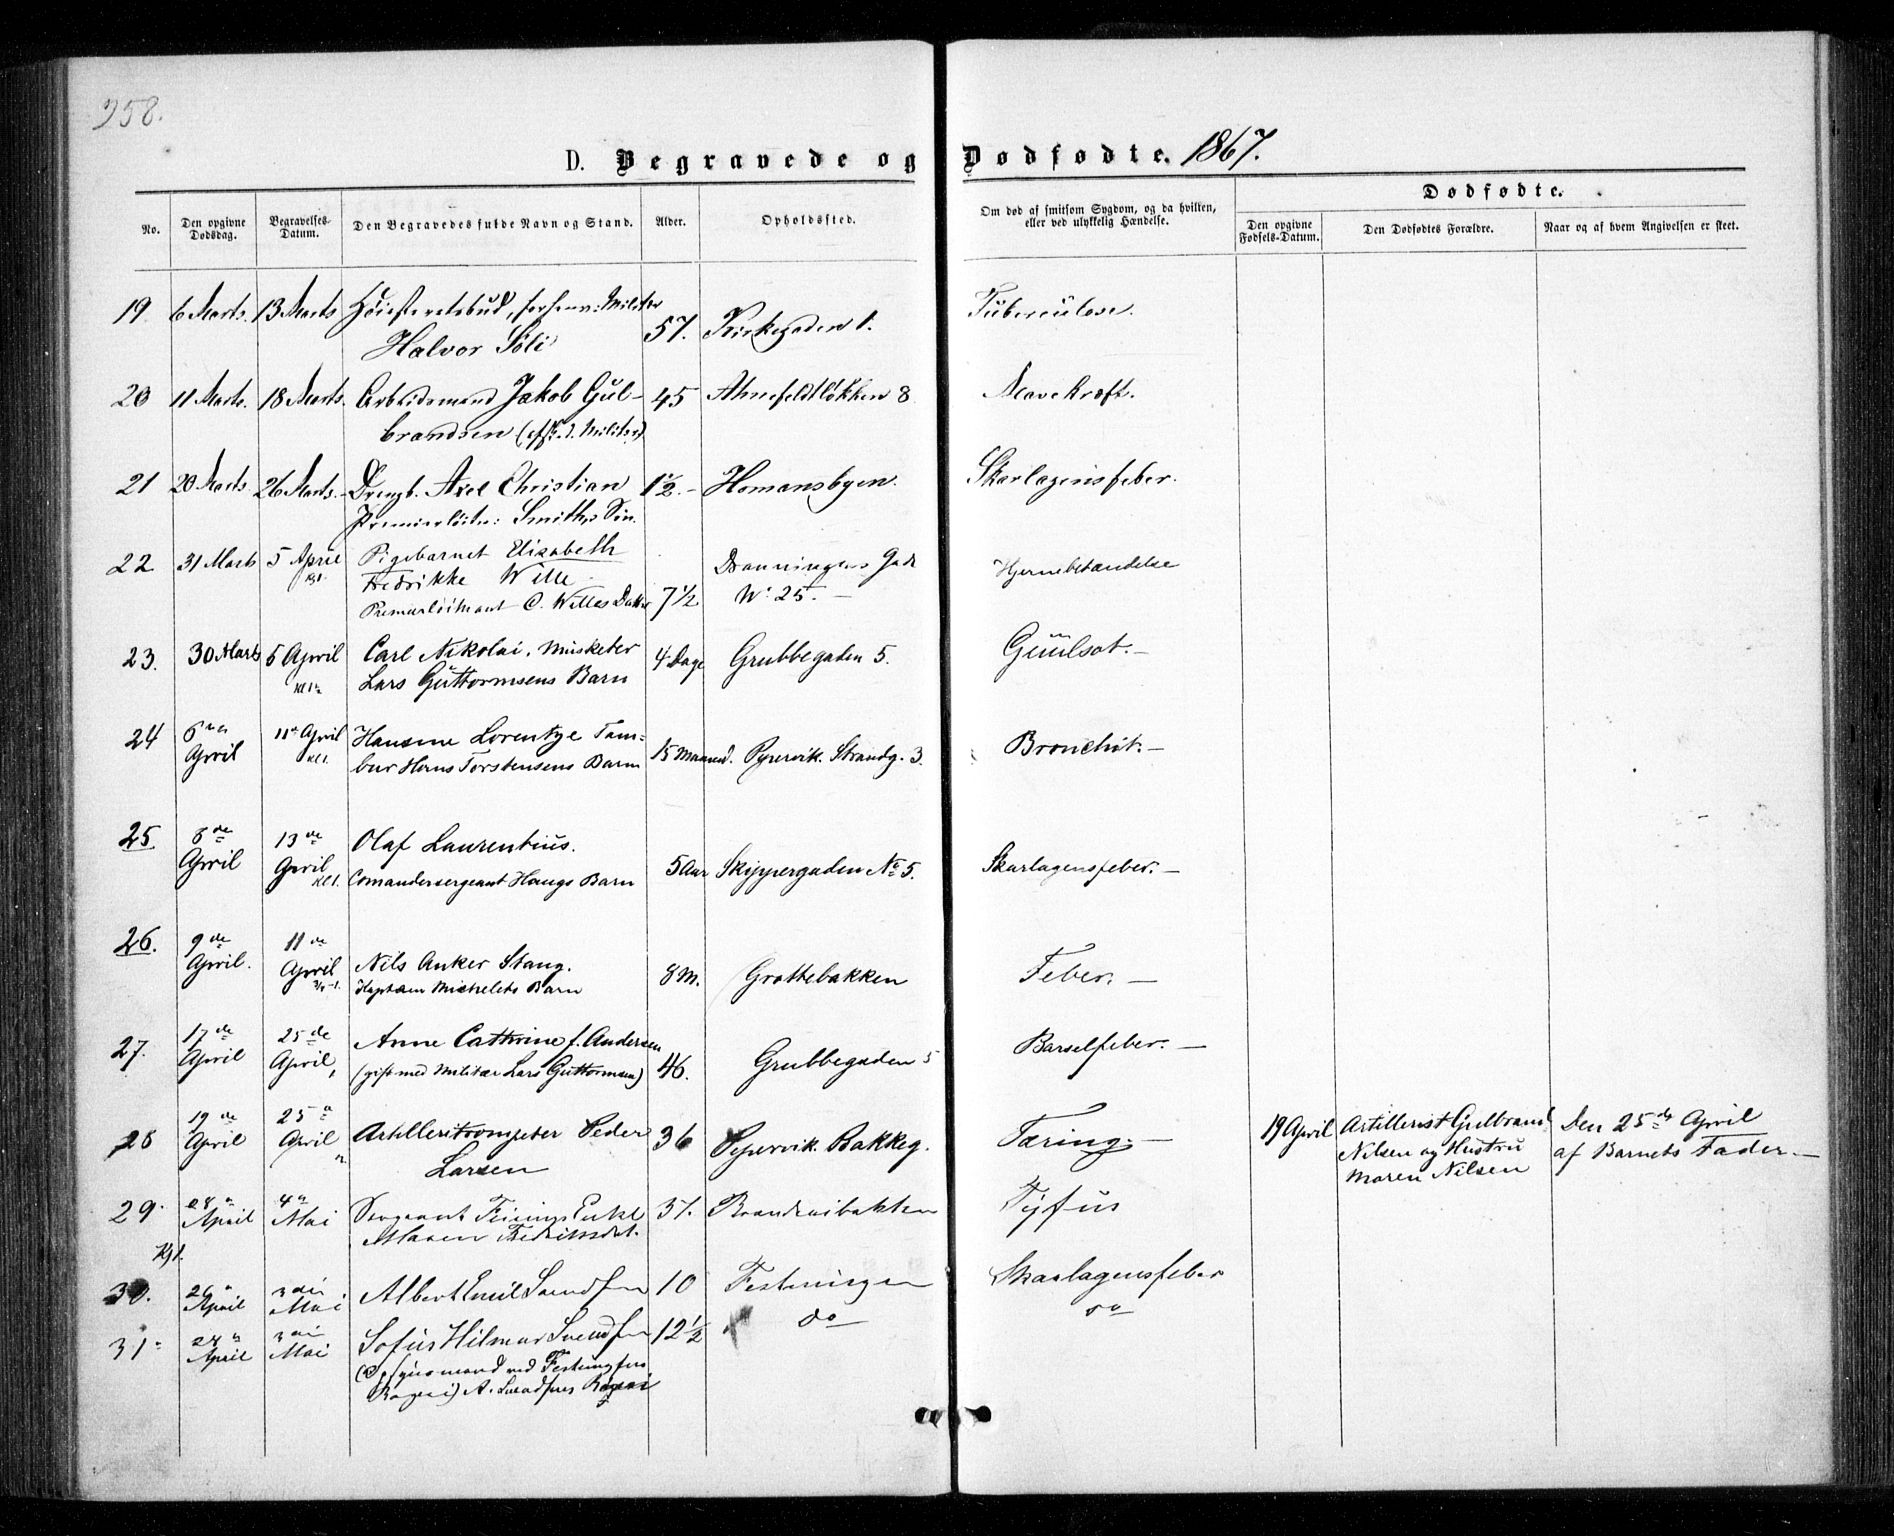 358.
D. Begravede og Dødfødte. 1867.
No.
Den opgivne Dødsdag.
Begravelses-Datum.
Den Begravedes fulde Navn og Stand.
Alder.
Opholdssted.
Om død af smitsom Sygdom, og da hvilken, eller ved ulykkelig Hændelse.
Dødfødte.
Den opgivne Fødsels-Datum.
Den Dødfødtes Forældre.
Naar og af hvem Angivelsen er skeet.
19 6 Marts. 13 Marts Høiesteretsbud, Militær 57. Kirkegaden 1. Tuberculose.
Halvor Søli
20 11 Marts. 18 Marts. Arbeidsmand Jakob Gul- 45 Ahnefeldtløkken 8 Mavekræft.
brandsen
21 20 Marts 26 Marts. Drengb. Axel Christian 1½.- Homansbyen. Skarlagensfeber.
Premierløitn: Smiths Søn.
22 31 Marts 5 April Pigebarnet Elisabeth Dronningens Gade Hjernebetændelse
Fredrikke Wille
Premierløitnant C. Willes Datter 7½ No 25. —
23. 30 Marts 5 April Carl Nikolai, Musketer 4 Dage Grubbegaden 5. Guulsot. —
Kl 1 Lars Guttormsens Barn
24 6 April 11 April Kl 1. Hansine Lorentze Tam- 15 Maaned. Pypervik. Strandg. 3. Bronchit. —
bur Hans Torstensens Barn
25. 8de April 13de April Kl 1. Olaf Laurentius. 5 Aar Skippergaden No 5. Skarlagensfeber. —
Comandersergeant Haugs Barn
26. 9de April. 11de April Nils Anker Stang. 8 M. Grottebakken Feber. —
Kaptein Michelets Barn
27. 17de April 25de April, Anne Cathrine f. Andersen 46. Grubbegaden 5 Barselfeber. —
(gift med Militær Lars Guttormsen)
28 19de April 25 April Artilleritrompeter Peder 36 Pipervik. Bakkeg. Tæring. — 19 April Artillerist Gulbrand Den 25de April
Larsen Nilsen og Hustru af Barnets Fader. —
Maren Nilsen
29. 28 April 4 Mai Sergeant Enke 37. Tyfus
Maren
Kl 1.
30. 26 April 3die Mai Albert Emil Svendsen 10 Festningen Skarlagensfeber
31 27 April 3die Mai Sofus Hilmar Svendsen 12½ do do
A. Svendsens